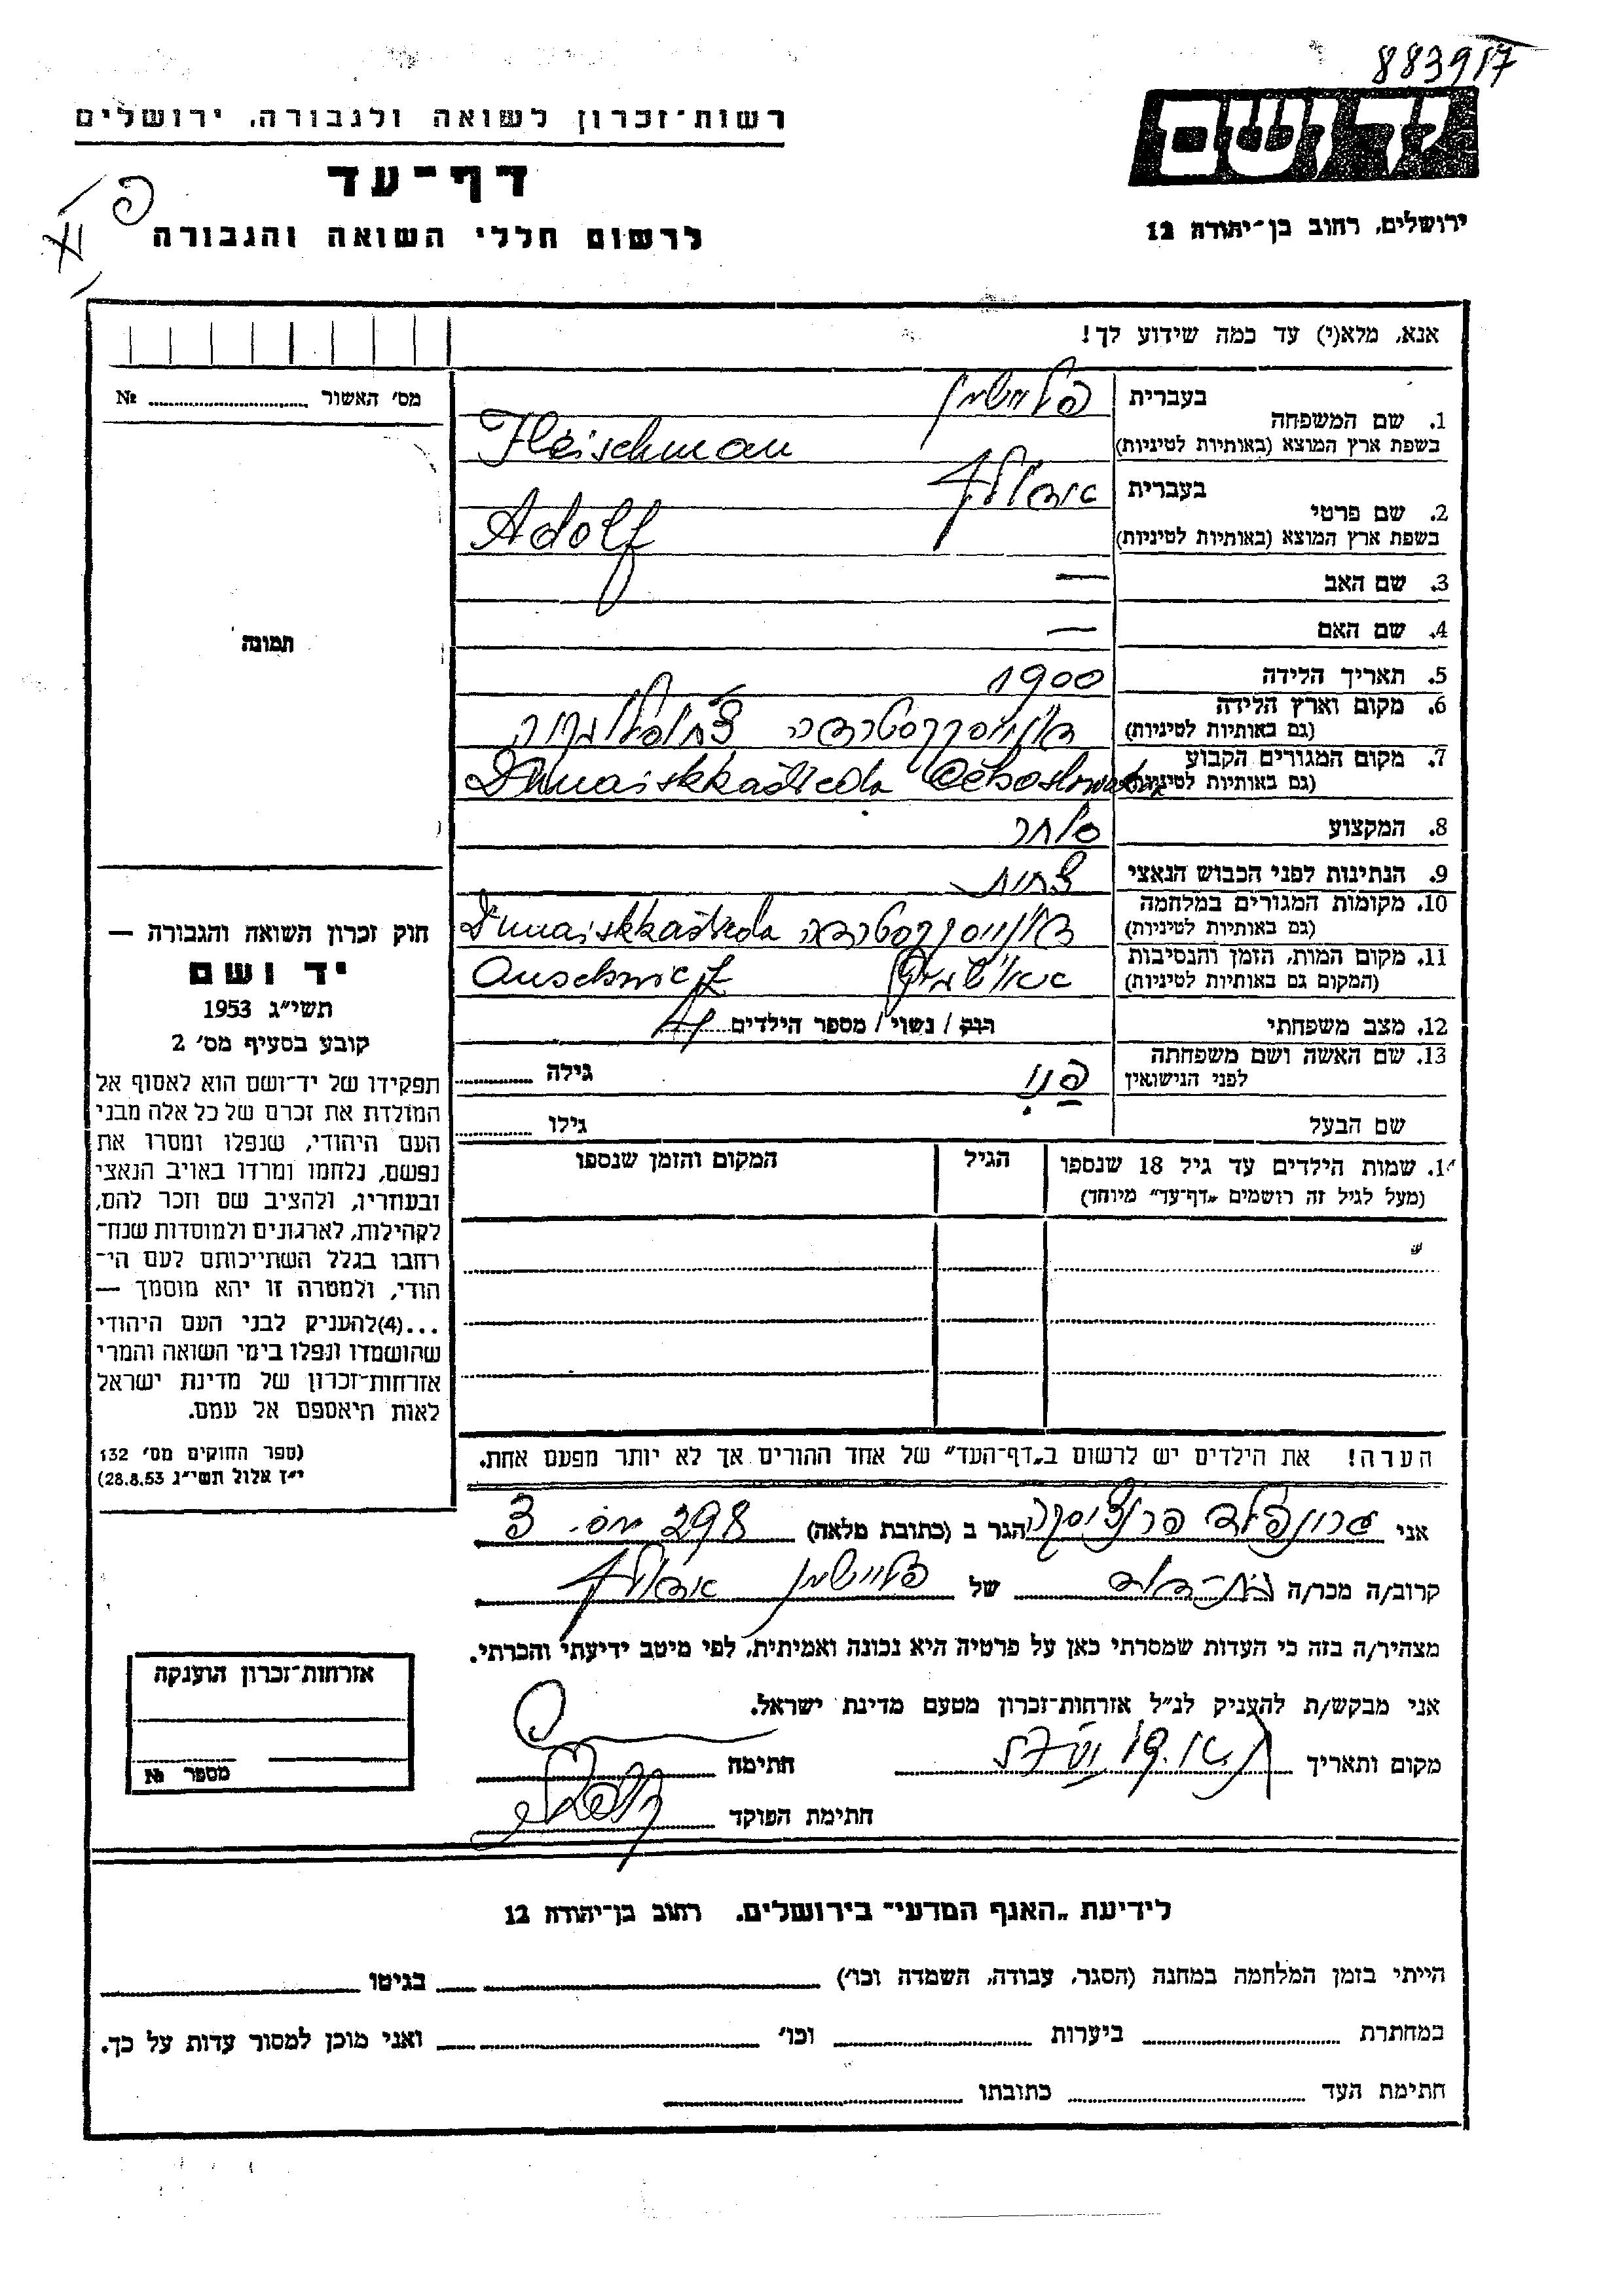 883917
רשות־זכרון לשואה ולגבורה, ירושלים
דף־עד
לרשום חללי השואה והגבורה
פ
ירושלים, רחוב בן־יהודה 12
אנא, מלא(י) עד כמה שידוע לך!
מס' האשור № 
1. שם המשפחה בעברית פליישמן
בשפת ארץ המוצא (באותיות לטיניות) Fleischman
2. שם פרטי בעברית אדולף
בשפת ארץ המוצא (באותיות לטיניות) Adolf
3. שם האב —
4. שם האם —
תמונה
5. תאריך הלידה 1900
6. מקום וארץ הלידה דונייסקסטרדה צ'כוסלובקיה
(גם באותיות לטיניות)
7. מקום המגורים הקבוע Dunaiskkaštreda Čekoslowakia
(גם באותיות לטיניות)
8. המקצוע סוחר
9. הנתינות לפני הכבוש הנאצי צ'כית
10. מקומות המגורים במלחמה דונייסקסטרדה Dunaiskkaštreda
(גם באותיות לטיניות)
11. מקום המות, הזמן והנסיבות אאושוויץ Auschwitz
(המקום גם באותיות לטיניות)
12. מצב משפחתי רווק / נשוי / מספר הילדים 4
13. שם האשה ושם משפחתה פני גילה
לפני הנישואין
שם הבעל גילו
14. שמות הילדים עד גיל 18 שנספו הגיל המקום והזמן שנספו
(מעל לגיל זה רושמים „דף־עד” מיוחד)
הערה! את הילדים יש לרשום ב„דף־העד” של אחד ההורים אך לא יותר מפעם אחת.
חוק זכרון השואה והגבורה —
יד ושם
תשי״ג 1953
קובע בסעיף מס' 2
תפקידו של יד־ושם הוא לאסוף אל
המולדת את זכרם של כל אלה מבני
העם היהודי, שנפלו ומסרו את
נפשם, נלחמו ומרדו באויב הנאצי
ובעוזריו, ולהציב שם וזכר להם,
לקהילות, לארגונים ולמוסדות שנח־
רבו בגלל השתייכותם לעם הי־
הודי, ולמטרה זו יהא מוסמך —
...(4) להעניק לבני העם היהודי
שהושמדו ונפלו בימי השואה והמרי
אזרחות־זכרון של מדינת ישראל
לאות היאספם אל עמם.
(ספר החוקים מס' 132
י״ז אלול תשי״ג 28.8.53)
אני גרונפלד פרנציסקה הגר ב (כתובת מלאה) 298
קרוב/ה מכר/ה בת־דוד של פליישמן אדולף
מצהיר/ה בזה כי העדות שמסרתי כאן על פרטיה היא נכונה ואמיתית, לפי מיטב ידיעתי והכרתי.
אני מבקש/ת להעניק לנ״ל אזרחות־זכרון מטעם מדינת ישראל.
מקום ותאריך חתימה
חתימת הפוקד
אזרחות־זכרון הוענקה
מספר №
לידיעת „האגף המדעי” בירושלים, רחוב בן־יהודה 12
הייתי בזמן המלחמה במחנה (הסגר, עבודה, השמדה וכו') בגיטו
במחתרת ביערות וכו' ואני מוכן למסור עדות על כך.
חתימת העד כתובתו